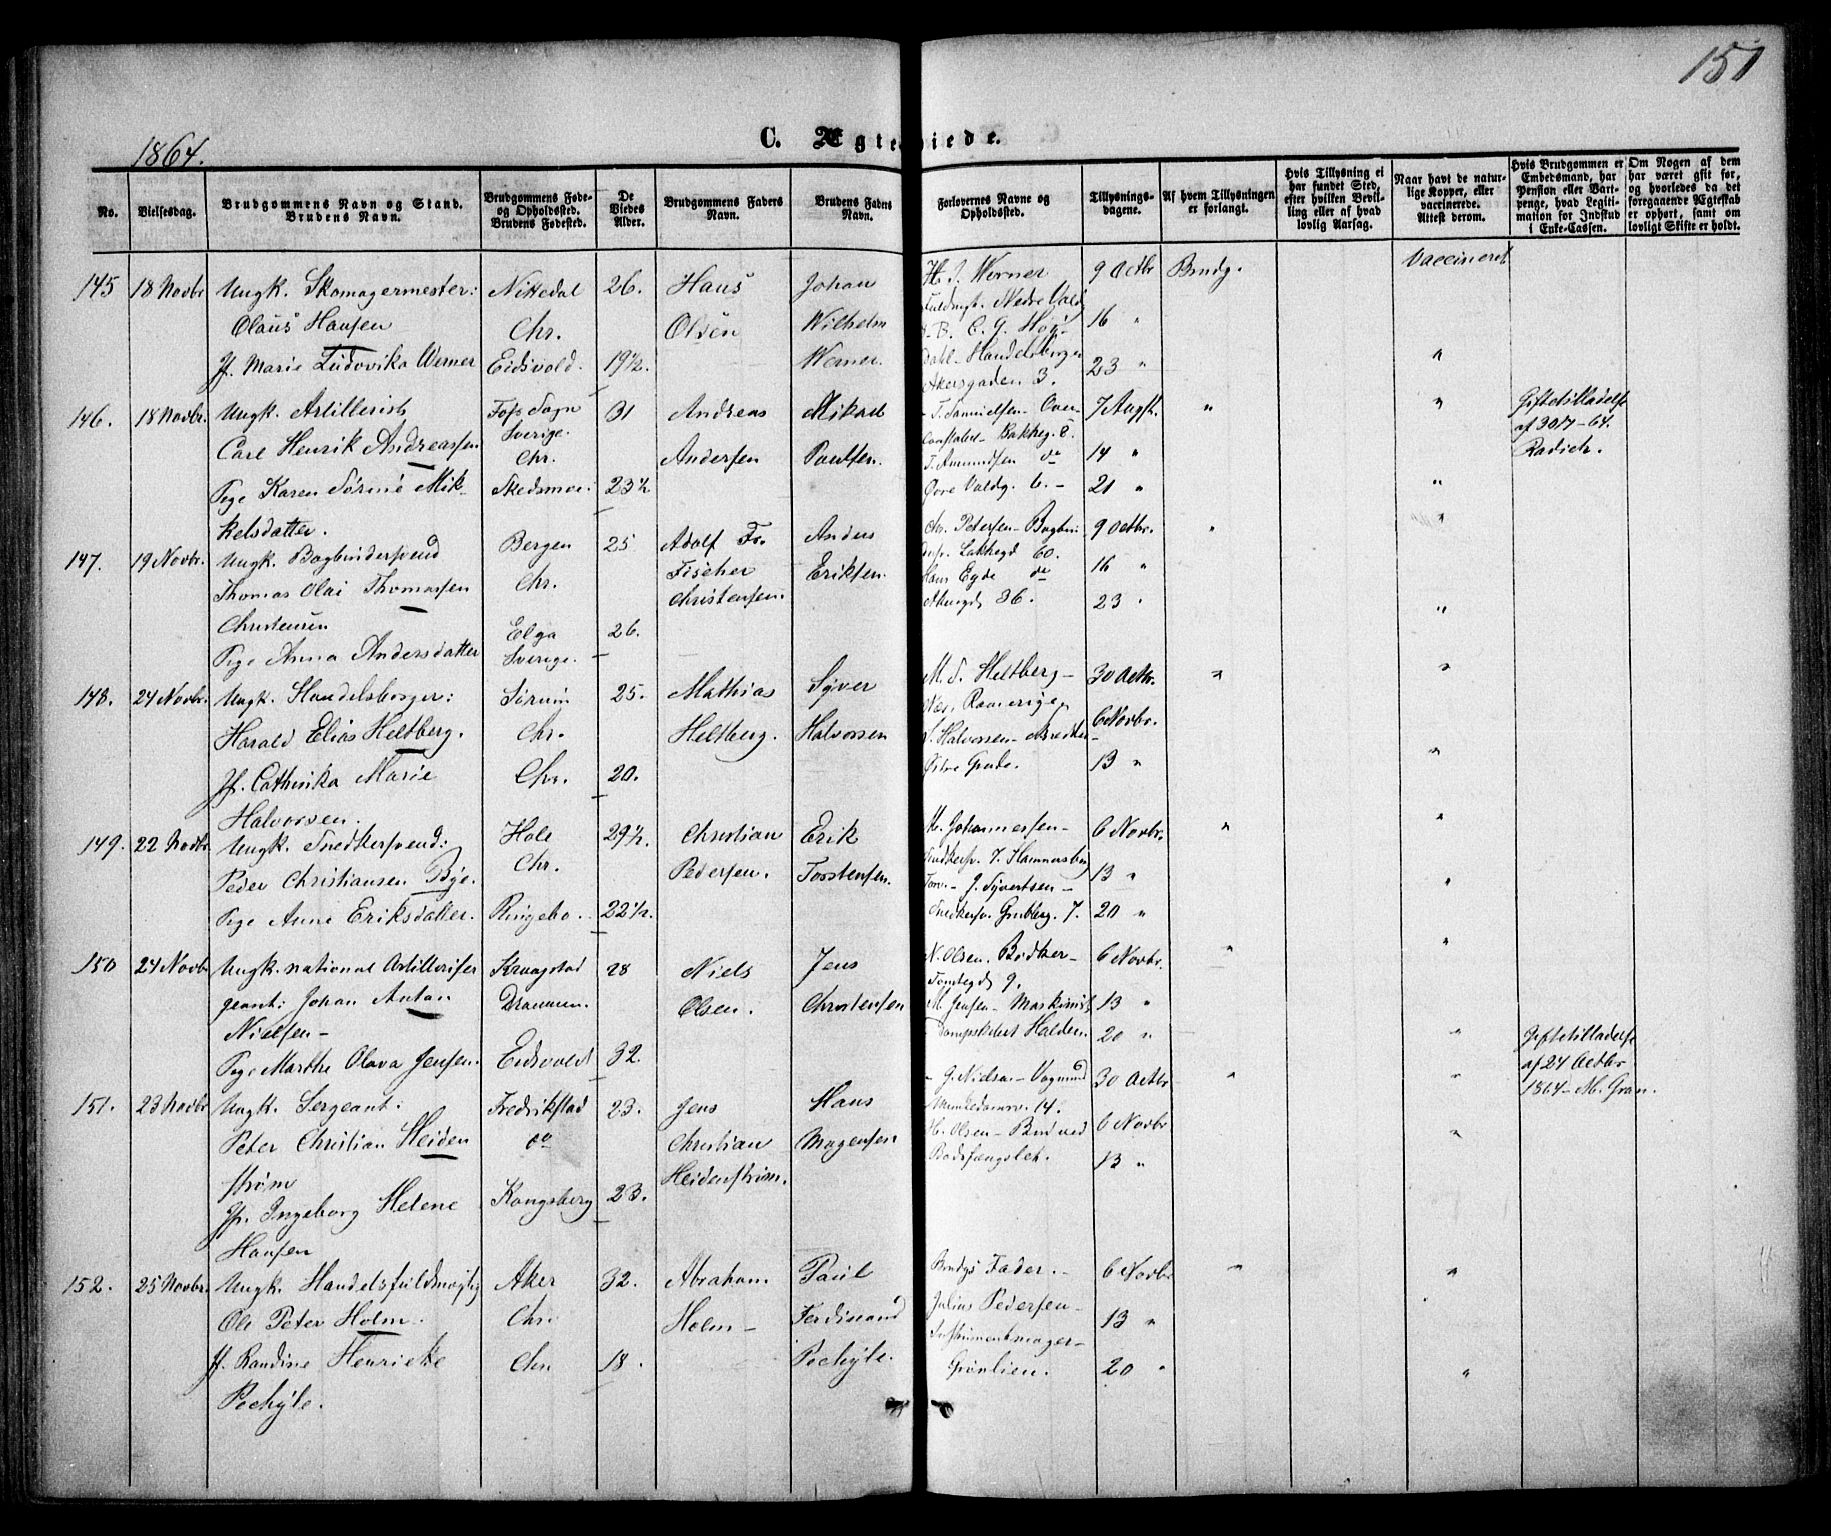 151
1864.
C. Ægteviede.
No.
Vielsesdag.
Brudgommens Navn og Stand.
Brudens Navn.
Brudgommens Føde-
og Opholdssted.
Brudens Fødested.
De
Viedes
Alder.
Brudgommens Faders
Navn.
Brudens Faders
Navn.
Forlovernes Navne og
Opholdssted.
Tillysnings-
dagene.
Af hvem Tillysningen
er forlangt.
Hvis Tillysning ei
har fundet Sted,
efter hvilken Bevil-
ling eller af hvad
lovlig Aarsag.
Naar havt de natur-
lige Kopper, eller
vaccinerede.
Attest derom.
Hvis Brudgommen er
Embedsmand, har
Pension eller Vart-
penge, hvad Legiti-
mation for Indskud
i Enke-Cassen.
Om Nogen af dem
har været gift før,
og hvorledes da det
foregaaende Ægteskab
er ophørt, samt om
lovligt Skifte er holdt.
145 18 Novbr Ungk. Skomagermester: Nittedal 26. Hans Johan H. J. Werner 9 Octbr Brudg. Vaccineret
Olaus Hansen Chr. Olsen Wilhelm Fuldmgt. Nedre Vold 16 "
Jf. Marie Ludovika Werner Eidsvold. 19½. Werner. Handelsborger 23 " "
Akersgaden 3.
146. 18 Novbr. Ungk. Artillerist Sogn 31 Andreas Mikael T. Samuelsen 7 Augst. " " Giftetilladelse
Sverige. af 30/7-64.
Carl Henrik Andreassen Chr. Andersen Paulsen. T. Amundsen do 14 "
Pige Karen Sørine Mik- Skedsmo. 23½ Øvre Voldg. 6.- 21 " "
kelsdatter.
147. 19 Novbr. Ungk. Bogbindersvend Bergen 25 Adolf Fr. Anders Chr. Petersen 9 Octbr. " "
Thomas Olai Thomassen Chr. Fischer Eriksen Hans Egde do 16 "
Christensen Christensen. 36. 23 " "
Elga 26.
Pige Anna Andersdatter Sverige.
148. 24 Novbr. Ungk. Handelsborger: Sørum 25. Mathias Syver M. S. Heltberg - 30 Octbr. " "
Harald Elias Heltberg. Chr. Heltberg. Halvorsen Halvorsen 6 Novbr.
Jf. Cathinka Marie Chr. 20. Østre Gade. 13 " "
Halvorsen.
149. 22 Novbr Ungk. Snedkersvend: Hole 29½. Christian Erik Johannessen - 6 Novbr. " "
Peder Christiansen Bye. Chr. Pedersen. Torstensen. Torv. - J. Syvertsen - 13 " "
Pige Anne Eriksdatter. Ringebo. 22½. Snedkersv. Grubbeg. 7. 20 "
150 24 Novbr Ungk. national Artilleriser Kraagstad 28 Niels Jens N. Olsen. Bødker - 6 Novbr. " "
geant: Johan Anton Drammen. Olsen. Christensen Tomtegd 9.
Nielsen - M. Jensen - Maskinist 13 "
Dampskibet Halden 20 " "
Pige Marthe Olava Jensen. Eidsvold 32. Giftetilladelse
af 24 Octbr
1864 - M. Gran.
151. 23 Novbr Ungk. Sergeant: Fredrikstad 23. Jens Hans J. Nielsen - Vognmd 30 Octbr " "
Munkedamsv. 14.
Peter Christian Heiden do Christian Mogensen H. Olsen - Bud ved 6 Novbr "
strøm Heidenstrøm. Bodsfængslet. 13 "
Jf. Ingeborg Helene Kongsberg 23.
Hansen
152. 25 Novbr. Ungk. Handelsfuldmægtig Aker 32. Abraham Paul Brudgs Fader. - 6 Novbr " "
Ole Peter Holm. Chr. Holm - Ferdinand Julius Pedersen - 13 "
Instrumentmager -
Jf. Randine Henriette Chr. 18. Pechyle. Grønlien. 20 " "
Pechyle.